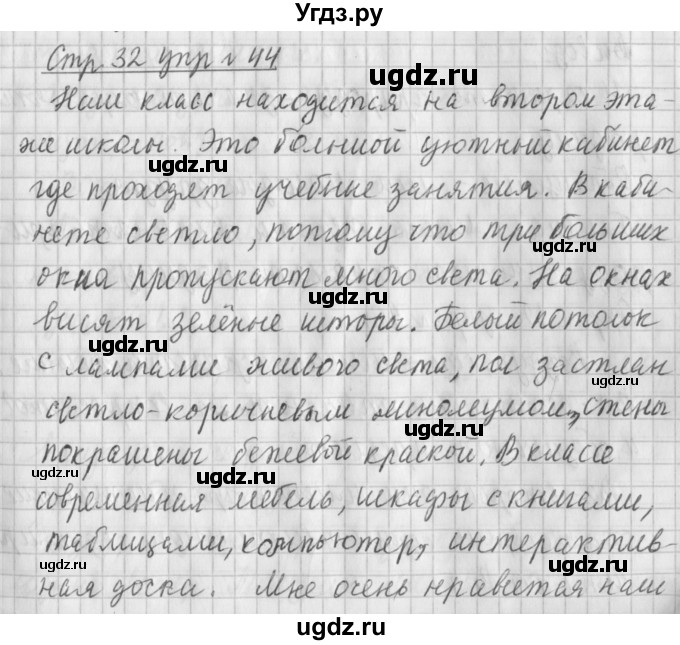 Угдз.ру
Стр 32 упр № 44
ugdz.ru
Наш класс находится на втором эта-
ugdz.ru
же школы. Это большой уютный кабинет
ugdz.ru
где проходят учебные занятия. В каби-
нете светло, потому что три больших
ugdz.ru
окна пропускают много света. На окнах
ugdz.ru
висят зелёные шторы. Белый потолок
ugdz.ru
с лампами живого света, пол застлан
ugdz.ru
светло-коричневым линолеумом, стены
ugdz.ru
покрашены бежевой краской. В классе
ugdz.ru ugdz.ru
современная мебель, шкафы с книгами,
таблицами, компьютер, интерактив-
ugdz.ru ugdz.ru
ная доска. Мне очень нравится наш
ugdz.ru